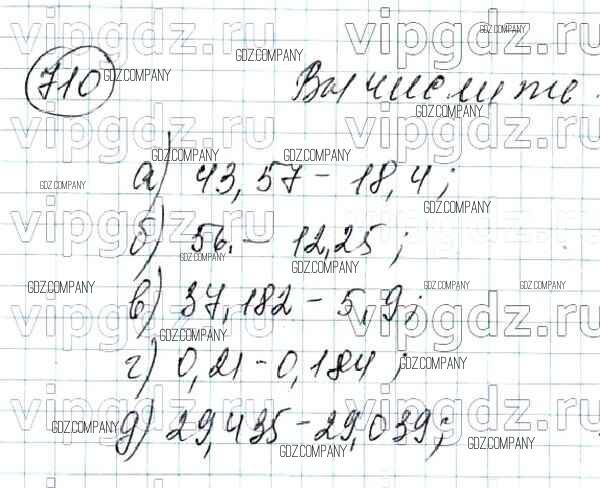 710 Вычислите.
а) 43,57 - 18,4;
б) 56 - 12,25;
в) 37,182 - 5,9;
г) 0,21 - 0,184;
д) 29,435 - 29,039;
vipgdz.ru
GDZ.COMPANY